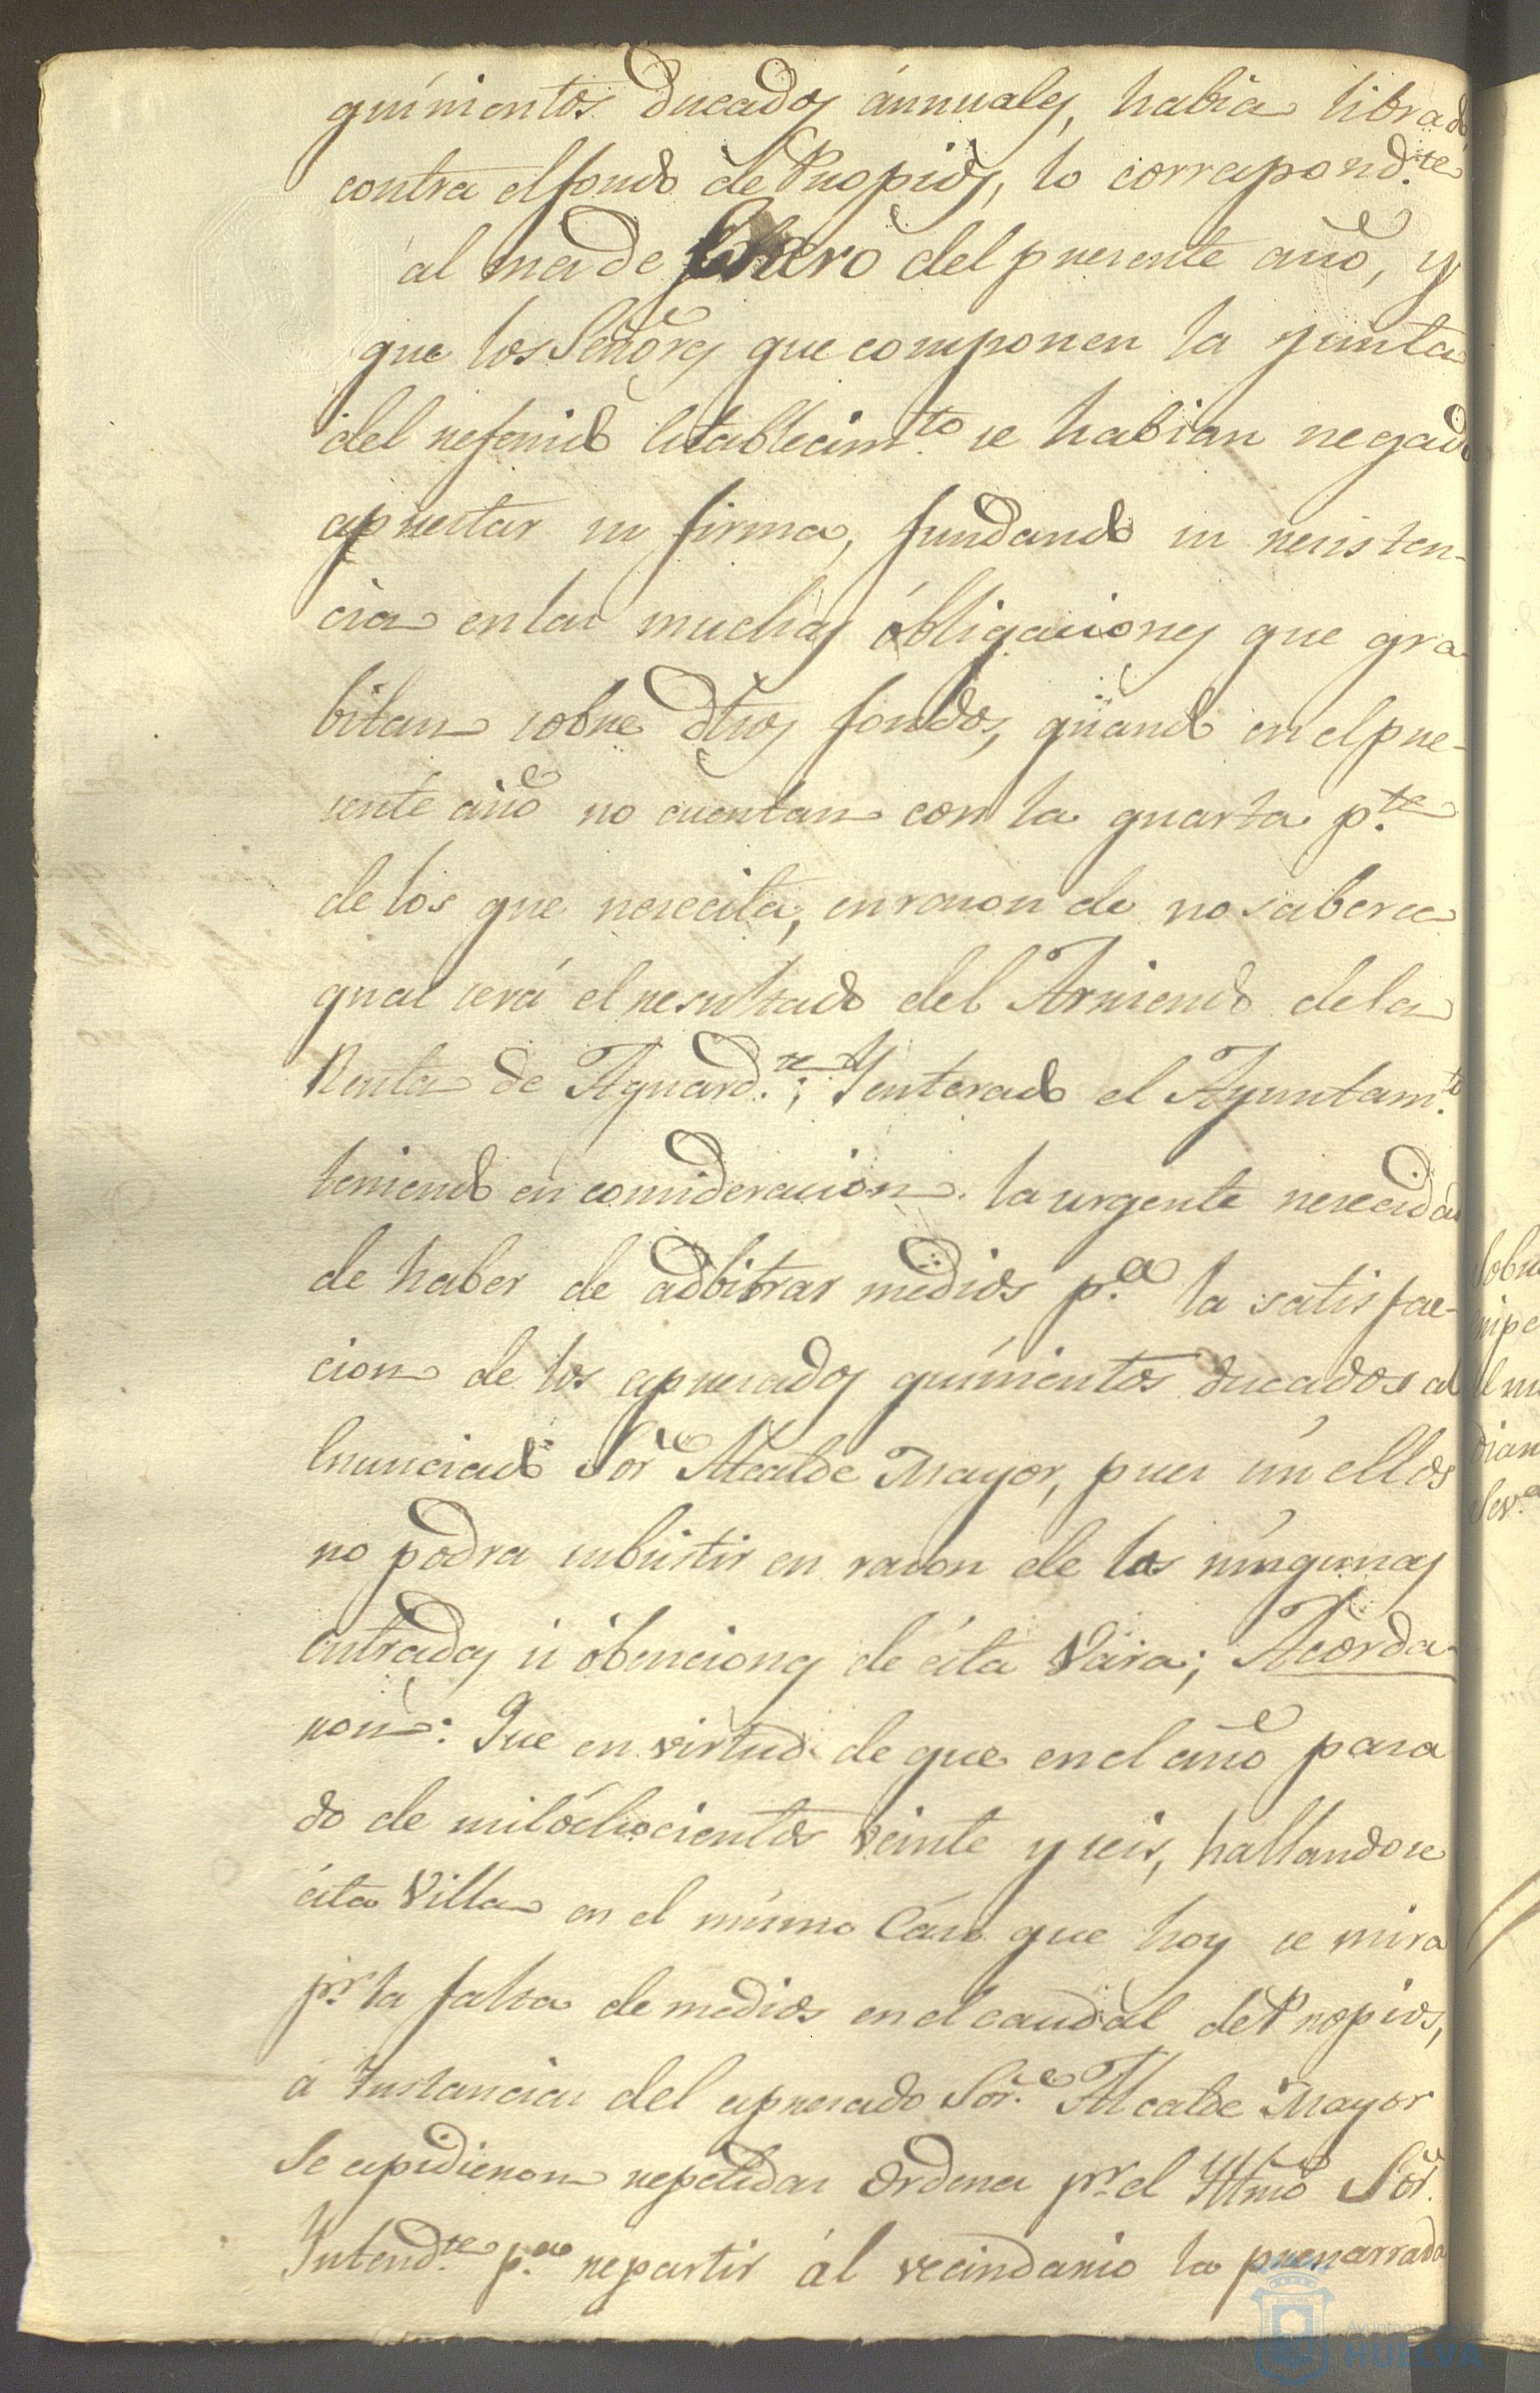 quinientos ducados ánnuales, habia librado
contra el fondo de Propios, lo correspond.te
al mes de Febrero del presente año, y
que los Señores que componen la Junta
del referido Establecim.to se habian negado
aprestar su firma, fundando su resisten-
cia en las muchas óbligaciones que gra
bitan sobre dhos fondos, qüando en el pre-
sente año no cuentan con la quarta p.te
de los que nesecita, en rason de no saberse
qual será el resultado del Arriendo de la
Renta de Aguard.te; Y enterado el Ayuntam.to
teniendo en consideracion la urgente nesecidad
de haber de adbitrar medios p.a la satisfac-
cion de los expresados quinientos ducados al
Enunciado Sor. Alcalde Mayor, pues sin ellos
no podra subsistir en rason de las ningunas
entradas ú óbenciones de ésta Vara; Acorda-
ron: Que en virtud de que en el año pasa
do de mil óchocientos veinte y seis, hallandose
ésta Villa en el mismo Caso que hoy se mira
pr. la falta de medios en el caudal de Propios,
a Instancias del expresado Sor. Alcalde Mayor
Se expidieron repetidas Ordenes pr. el Yltmo Sor.
Intend.te p.a repartir ál vecindario la prenarrada
sobre
Sev.a
Ayuntamiento de
HUELVA